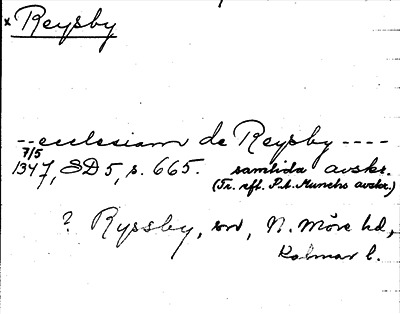 x Reysby
-- ecclesiam de Reysby ----
7/5
1347, SD 5, s. 665. samtida avskr.
(Tr. eft. P.A. Munchs avskr.)
? Ryssby, sn, N. Möre hd,
Kalmar l.